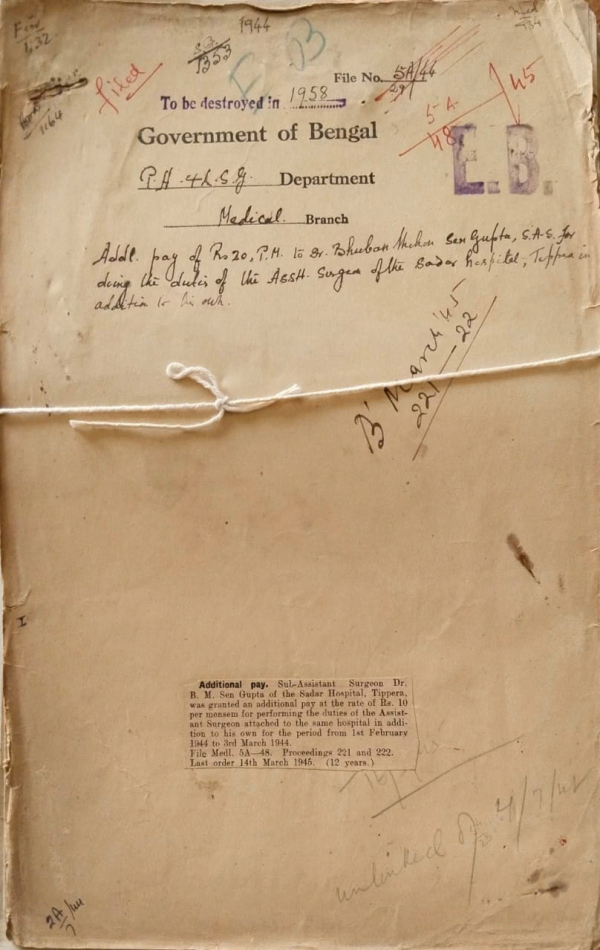 1944
53
1353
filed
File No. 5A/44
29
To be destroyed in 1958
5-A
48
45
Government of Bengal
E.B.
P.H. & L.S.G. Department
Medical Branch
Addl. pay of Rs 20, P.M. to Dr. Bhuban Mohon Sen Gupta, S.A.S. for
doing the duties of the Asst. Surgeon of the Sadar hospital, Tippera in
addition to his own.
'B' March '45
221 — 22
Additional pay. Sub-Assistant Surgeon Dr.
B. M. Sen Gupta of the Sadar Hospital, Tippera,
was granted an additional pay at the rate of Rs. 10
per mensem for performing the duties of the Assist-
ant Surgeon attached to the same hospital in addi-
tion to his own for the period from 1st February
1944 to 3rd March 1944.
File Medl. 5A—48. Proceedings 221 and 222.
Last order 14th March 1945. (12 years.)
unlinked
2A